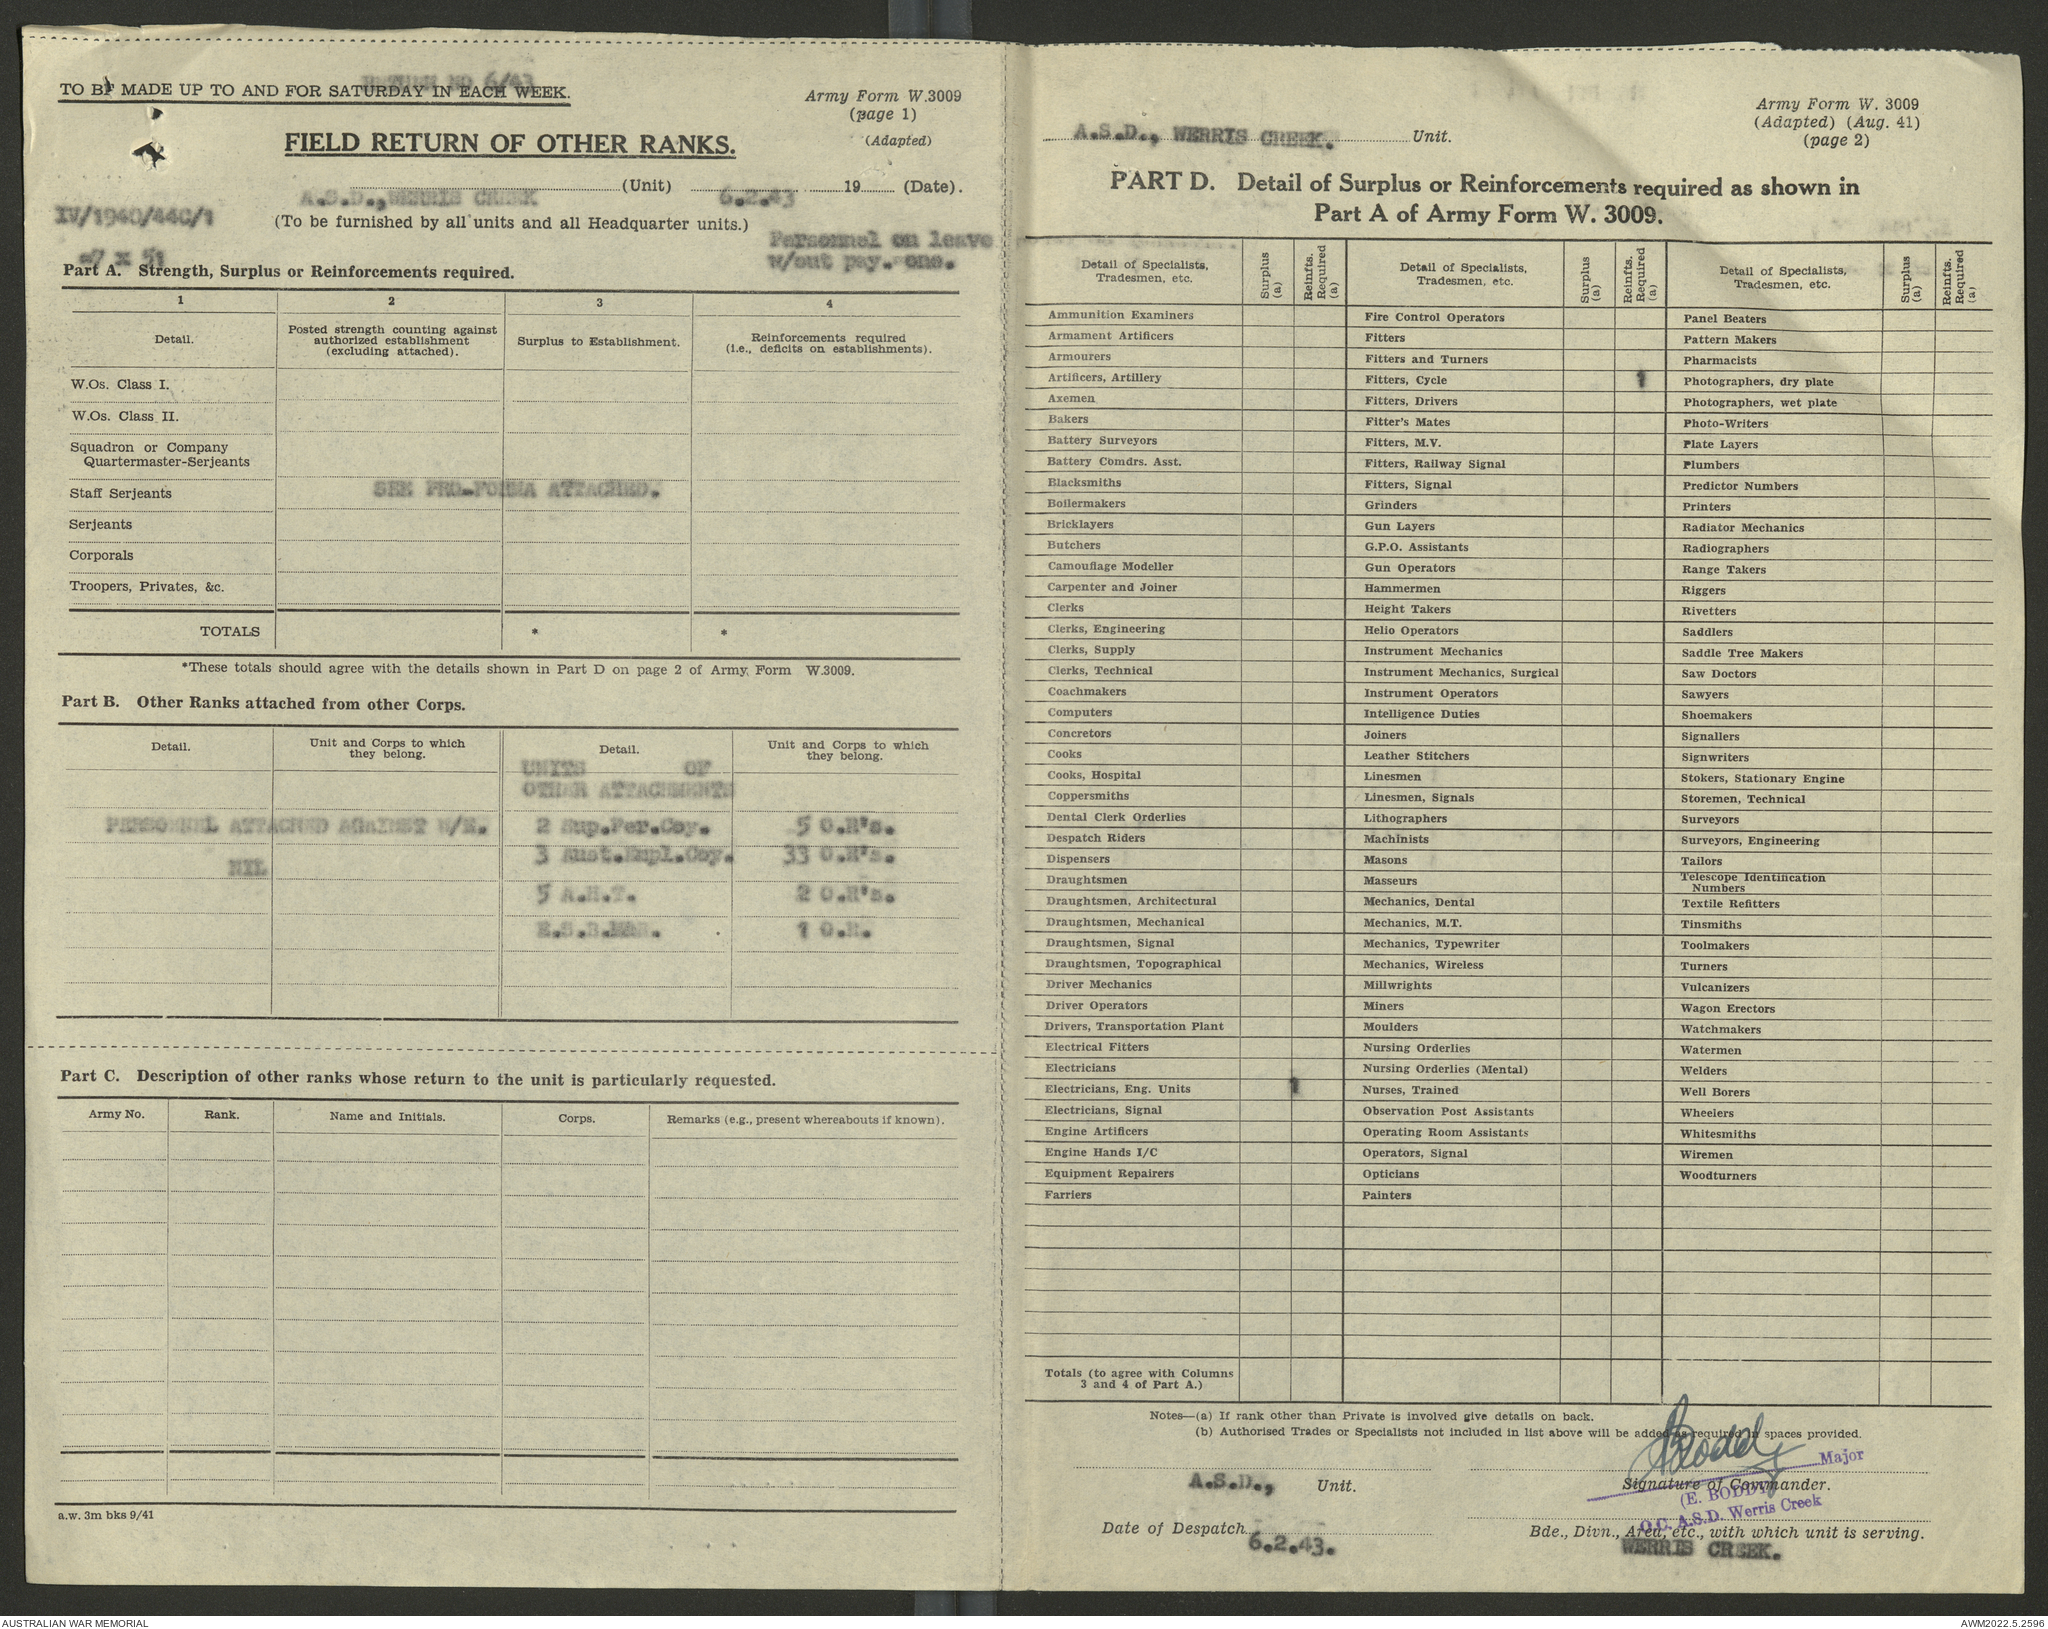 RETURN NO 6/43
TO BE MADE UP TO AND FOR SATURDAY IN EACH WEEK.
Army Form W.3009
(page 1)
(Adapted)
FIELD RETURN OF OTHER RANKS.
A.S.D., WERRIS CREEK (Unit) 6.2.43 19 (Date).
IV/1940/440/1
(To be furnished by all units and all Headquarter units.)
-7 x 51
Personnel on leave
w/out pay. - one.
Part A. Strength, Surplus or Reinforcements required.
1 2 3 4
Detail.
Posted strength counting against
authorized establishment
(excluding attached).
Surplus to Establishment.
Reinforcements required
(i.e., deficits on establishments).
W.Os. Class I.
W.Os. Class II.
Squadron or Company
Quartermaster-Serjeants
Staff Serjeants
SEE PRO-FORMA ATTACHED.
Serjeants
Corporals
Troopers, Privates, &c.
TOTALS * *
*These totals should agree with the details shown in Part D on page 2 of Army Form W.3009.
Part B. Other Ranks attached from other Corps.
Detail.
Unit and Corps to which
they belong.
Detail.
Unit and Corps to which
they belong.
UNITS OF
OTHER ATTACHMENTS
PERSONNEL ATTACHED AGAINST W/E. 2 Sup.Per.Coy. 5 O.R's.
NIL 3 Aust.Empl.Coy. 33 O.R's.
5 A.H.T. 2 O.R's.
1 O.R.
Part C. Description of other ranks whose return to the unit is particularly requested.
Army No. Rank. Name and Initials. Corps. Remarks (e.g., present whereabouts if known).
a.w. 3m bks 9/41
Army Form W. 3009
(Adapted) (Aug. 41)
(page 2)
A.S.D., WERRIS CREEK. Unit.
PART D. Detail of Surplus or Reinforcements required as shown in
Part A of Army Form W. 3009.
Detail of Specialists,
Tradesmen, etc.
Surplus
(a)
Reinfts.
Required
(a)
Detail of Specialists,
Tradesmen, etc.
Surplus
(a)
Reinfts.
Required
(a)
Detail of Specialists,
Tradesmen, etc.
Surplus
(a)
Reinfts.
Required
(a)
Ammunition Examiners Fire Control Operators Panel Beaters
Armament Artificers Fitters Pattern Makers
Armourers Fitters and Turners Pharmacists
Artificers, Artillery Fitters, Cycle 1 Photographers, dry plate
Axemen Fitters, Drivers Photographers, wet plate
Bakers Fitter's Mates Photo-Writers
Battery Surveyors Fitters, M.V. Plate Layers
Battery Comdrs. Asst. Fitters, Railway Signal Plumbers
Blacksmiths Fitters, Signal Predictor Numbers
Boilermakers Grinders Printers
Bricklayers Gun Layers Radiator Mechanics
Butchers G.P.O. Assistants Radiographers
Camouflage Modeller Gun Operators Range Takers
Carpenter and Joiner Hammermen Riggers
Clerks Height Takers Rivetters
Clerks, Engineering Helio Operators Saddlers
Clerks, Supply Instrument Mechanics Saddle Tree Makers
Clerks, Technical Instrument Mechanics, Surgical Saw Doctors
Coachmakers Instrument Operators Sawyers
Computers Intelligence Duties Shoemakers
Concretors Joiners Signallers
Cooks Leather Stitchers Signwriters
Cooks, Hospital Linesmen Stokers, Stationary Engine
Coppersmiths Linesmen, Signals Storemen, Technical
Dental Clerk Orderlies Lithographers Surveyors
Despatch Riders Machinists Surveyors, Engineering
Dispensers Masons Tailors
Draughtsmen Masseurs Telescope Identification
Numbers
Draughtsmen, Architectural Mechanics, Dental Textile Refitters
Draughtsmen, Mechanical Mechanics, M.T. Tinsmiths
Draughtsmen, Signal Mechanics, Typewriter Toolmakers
Draughtsmen, Topographical Mechanics, Wireless Turners
Driver Mechanics Millwrights Vulcanizers
Driver Operators Miners Wagon Erectors
Drivers, Transportation Plant Moulders Watchmakers
Electrical Fitters Nursing Orderlies Watermen
Electricians Nursing Orderlies (Mental) Welders
Electricians, Eng. Units 1 Nurses, Trained Well Borers
Electricians, Signal Observation Post Assistants Wheelers
Engine Artificers Operating Room Assistants Whitesmiths
Engine Hands I/C Operators, Signal Wiremen
Equipment Repairers Opticians Woodturners
Farriers Painters
Totals (to agree with Columns
3 and 4 of Part A.)
Notes—(a) If rank other than Private is involved give details on back.
(b) Authorised Trades or Specialists not included in list above will be added as required in spaces provided.
EBoddy
Major
A.S.D., Unit.
Signature of Commander.
(E. BODDY)
O.C. A.S.D. Werris Creek
Date of Despatch 6.2.43.
Bde., Divn., Area, etc., with which unit is serving.
WERRIS CREEK.
AUSTRALIAN WAR MEMORIAL
AWM2022.5.2596